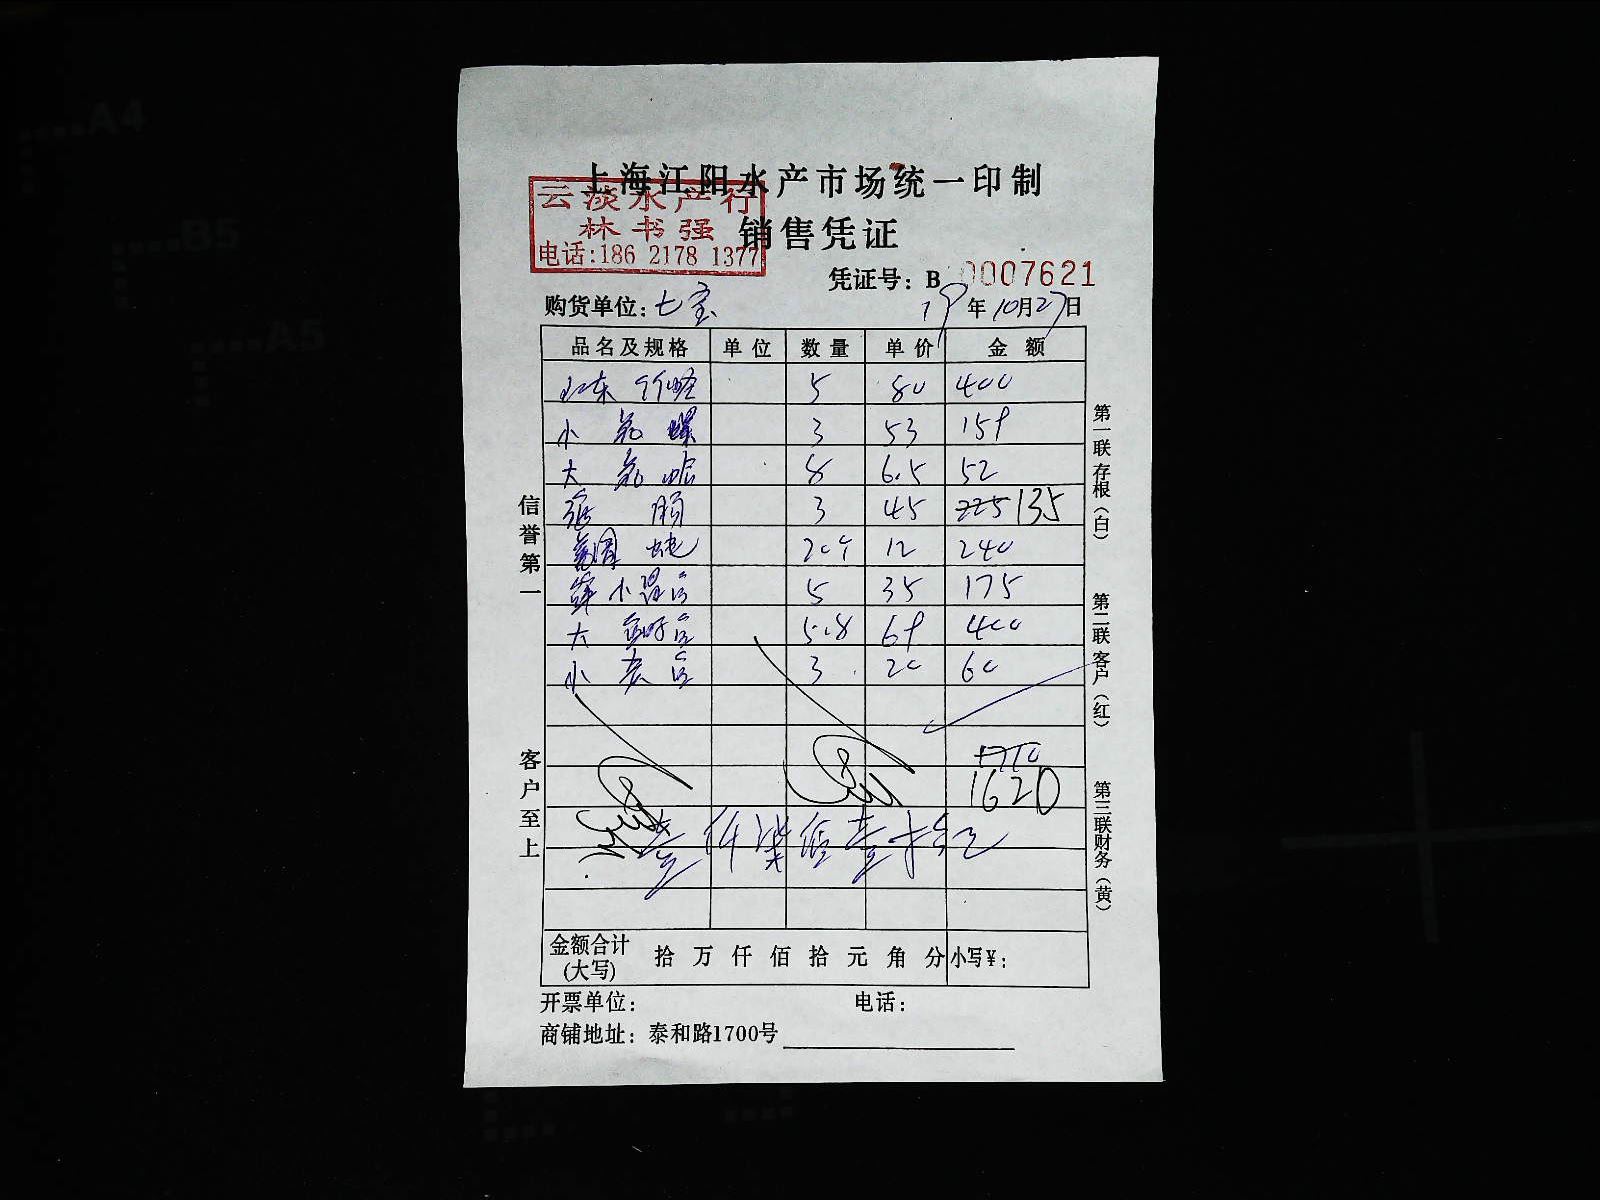 上海江阳水产市场统一印制
云淡水产行
林书强
电话:186 2178 1377
销售凭证
凭证号：B 0007621
购货单位：七宝 19年10月27日
品名及规格 单位 数量 单价 金额
5 80 400
小 3 53 159
大 8 6.5 52
3 45 225 135
20个 12 240
小 5 35 175
大 5.8 69 400
小 3 20 60
1710
1620
壹仟柒佰壹十
金额合计(大写) 拾 万 仟 佰 拾 元 角 分 小写¥：
开票单位： 电话：
商铺地址：泰和路1700号
信誉第一
客户至上
第一联存根（白）
第二联客户（红）
第三联财务（黄）
A4
B5
A5